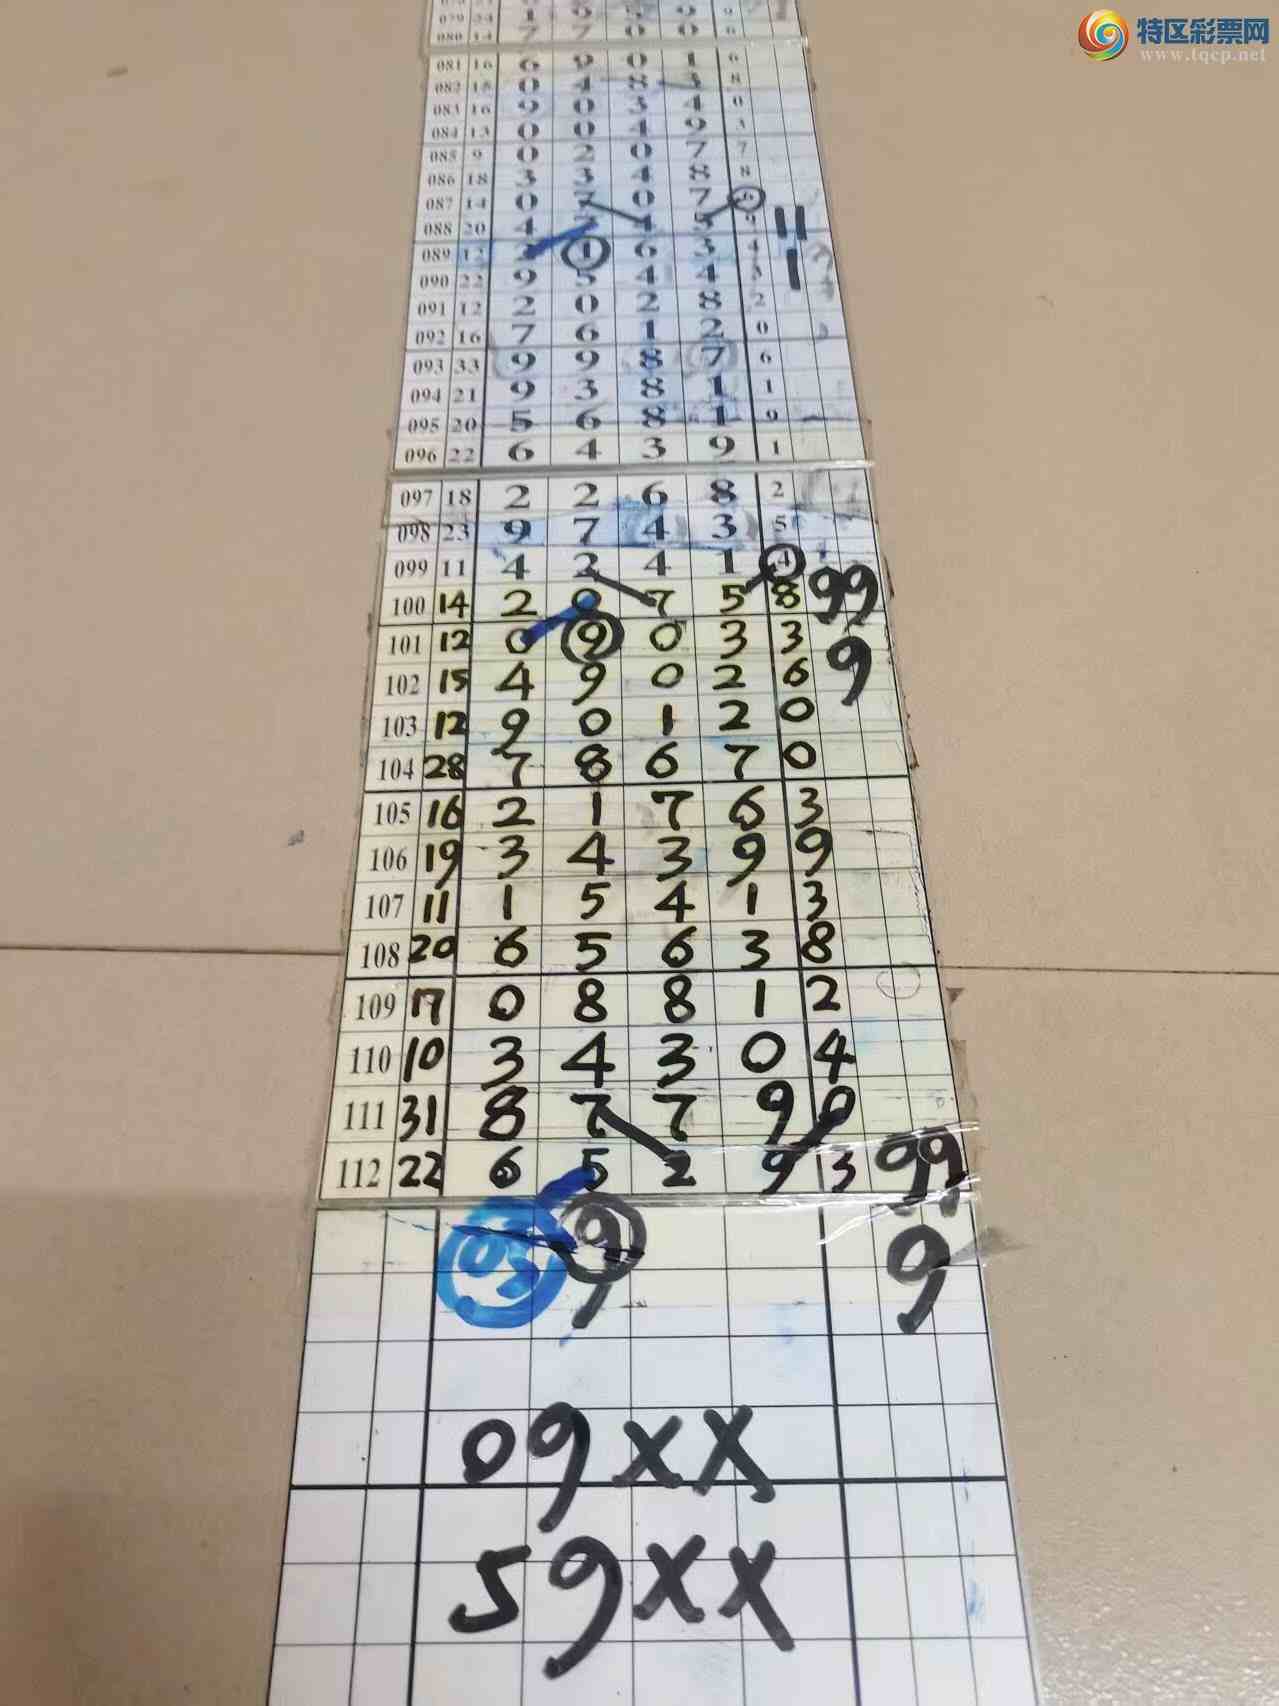 特区彩票网
www.tqcp.net
079 24
080 14 7 7 0 0 6
081 16 6 9 0 1 6
082 15 0 4 8 3 8
083 16 9 0 3 4 0
084 13 0 0 4 9 3
085 9 0 2 0 7 7
086 18 3 3 4 8 8
087 14 0 7 0 7 6
088 20 4 7 4 5 9 11
089 12 2 1 6 3 4 1
090 22 9 5 4 4 3
091 12 2 0 2 8 2
092 16 7 6 1 2 0
093 33 9 9 8 7 6
094 21 9 3 8 1 1
095 20 5 6 8 1 9
096 22 6 4 3 9 1
097 18 2 2 6 8 2
098 23 9 7 4 3 5
099 11 4 2 4 1 4
100 14 2 0 7 5 8 99
101 12 0 9 0 3 3 9
102 15 4 9 0 2 6
103 12 9 0 1 2 0
104 28 7 8 6 7 0
105 16 2 1 7 6 3
106 19 3 4 3 9 9
107 11 1 5 4 1 3
108 20 6 5 6 3 8
109 17 0 8 8 1 2
110 10 3 4 3 0 4
111 31 8 7 7 9 0
112 22 6 5 2 9 3 99
05 9 9
09XX
59XX